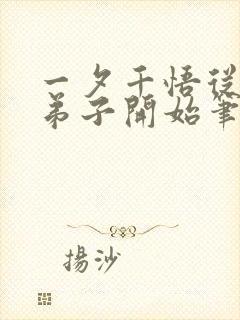 一夕千悟從
弟子開始筆
揚沙